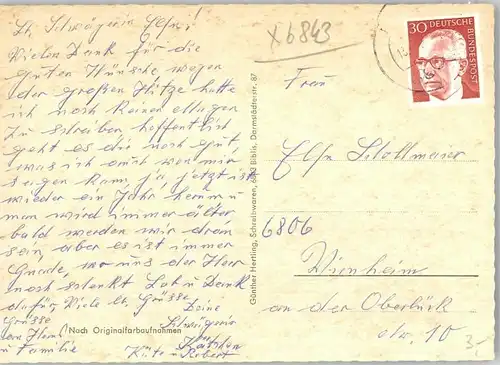 Lb. Schwägerin Elfn!
Vielen Dank für die
guten Wünsche wegen
der großen Hitze hatte
ich noch keinen
zu schreiben, hoffentlich
geht es die noch gut,
was ich auch von mir
sagen kann ja jetzt ist
wieder ein Jahr herum u
man wird immer älter
bald werden wir dran
sein, aber es ist immer
Gnade, wo uns der Herr
noch schenkt Lob u Dank
dafür, Viele lb. Grüsse
Grüsse Deine
Schwägerin
u Familie u. Robert
Nach Originalfarbaufnahmen
Günther Hertling, Schreibwaren, 6843 Biblis, Darmstädterstr. 87
X 6843
30 DEUTSCHE BUNDESPOST
Frau
Elfn Stollmaier
6806
Viernheim
an der Oberlück
Nr. 10
3.-